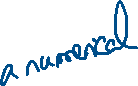 a numerical